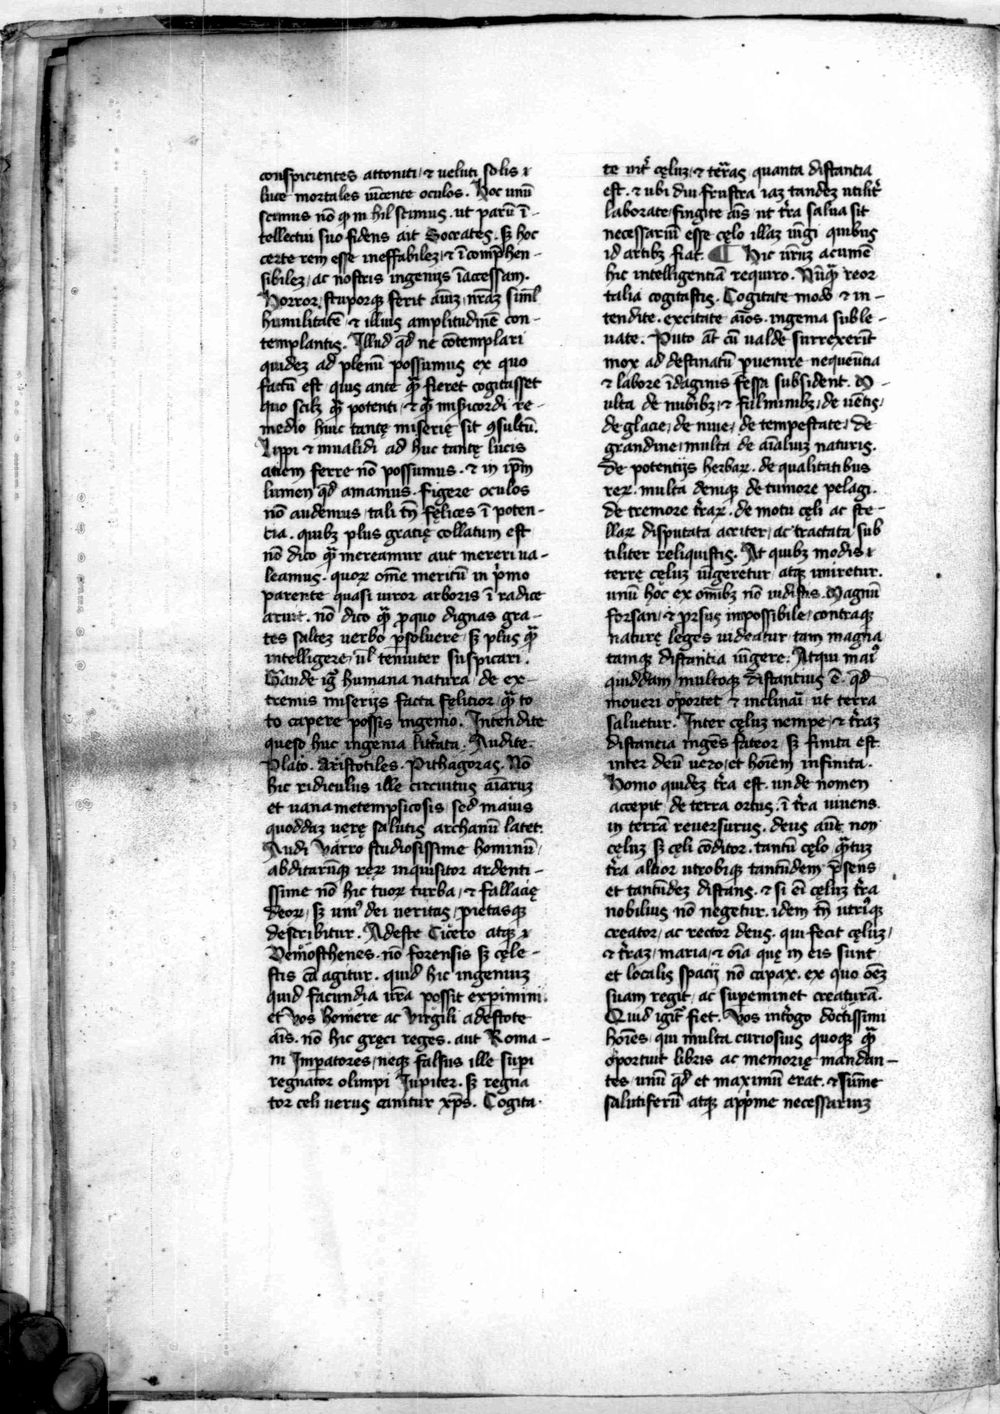 conspicientes attoniti / ⁊ ueluti solis ⁊
luce mortales uīcente oculos. Hoc unū
scimus nō ꝙ nihil scimus. ut parū ī-
tellectui suo fidens ait Socrates. sꝫ hoc
certe rem esse ineffabilez / ⁊ īcomp̄hen-
sibilez / ac nostris ingenijs īaccessam.
Horror / stuporqꝫ ferit aīuꝫ nr̄aꝫ siml̄
humilitatē ⁊ illius amplitudinē con-
templantis. Illud qd̄ ne cōtemplari
quidez ad plenū possumus ex quo
factū est quis ante qȝ̄ fieret cogitasset
quo scilꝫ qȝ̄ potenti / ⁊ qȝ̄ misericordi re-
medio huic tantę miserię sit ꝯsultū.
Lippi ⁊ inualidi ad huc tantę lucis
atiem ferre nō possumus. ⁊ in ip̄m
lumen qd̄ amamus. figere oculos
nō audemus / tali tn̄ fęlices ī poten-
tia. quibꝫ plus gratię collatum est
nō dico qȝ̄ mereamur aut mereri ua-
leamus. quoꝝ om̄e meritū in p̄mo
parente quasi uiror arboris ī radice
aruit. nō dico qȝ̄ ꝓquo dignas gra-
tes saltez uerbo ꝑsoluere / sꝫ plus qȝ̄
intelligere / ul̄ tenuiter suspicari.
Gaude ig̃ humana natura / de ex-
tremis miserijs facta fęlicior / qȝ̄ to
to capere possis ingenio. Intendite
queso huc ingenia litt̄rata. Audite.
Plato. Aristotiles. Pithagoras. Nō
hic ridiculus ille circuitus aīaruꝫ
et uana metempsicosis sed maius
quoddaz uerę salutis archanū latet.
Audi Varro studiosissime hominū /
abditarūqꝫ reꝝ inquisitor ardenti-
ssime nō hic tuoꝝ turba / ⁊ fallacię
deoꝝ / sꝫ uniꝰ dei ueritas / pietasqꝫ
describitur. Adeste Cicero atqꝫ ⁊
Demosthenes. nō forensis sꝫ cęle-
stis cā agitur. quid hic ingeniuꝫ
quid facundia ur̄a possit exprimini.
et uos homere ac Virgili adestote
aīs. nō hic gręci reges. aut Roma-
ni Imꝑatores / neqꝫ falsus ille suꝑi
regnator olimpi Iupiter. sꝫ regna
tor celi uerus canitur xp̄s. Cogita-
te int̄ cęluꝫ / ⁊ ter̄as quanta distantia
est. ⁊ ubi diu frustra iaꝫ tandez utilit̄
laborate / fingite aīs ut t̄ra salua sit
necessariū esse cęlo illaꝫ iūgi quibus
id artibꝫ fiat. ¶ Hic ur̄uꝫ acumē
hic intelligentiā requiro. Nūqȝ̄ reor
talia cogitastis. Cogitate modo ⁊ in-
tendite. excitate aīos. ingenia suble-
uate. Puto at̄ cū ualde surrexerīt
mox ad destinatū ꝑuenire nequeūtia
⁊ labore īdaginis fessa subsident. M-
ulta de nubibꝫ / ⁊ fulminibꝫ / de uētis /
de glacie / de niue / de tempestate / de
grandine / multa de aīaliuꝫ naturis.
de potentijs herbaꝝ. de qualitatibus
reꝝ. multa deniqꝫ de tumore pelagi.
de tremore t̄raꝝ. de motu cęli ac ste-
llaꝝ disputata acriter / ac tractata sub
tiliter reliquistis. At quibꝫ modis ⁊
terrę cęluꝫ iūgeretur atqꝫ uniretur.
unū hoc ex om̄ibꝫ nō uidistis. Magnū
forsan / ⁊ ꝓrsus impossibile / contraqꝫ
naturę leges uideatur tam magna
tamqꝫ distantia iūgere. Atqui maiꝰ
quiddam multoqꝫ distantius ē. qd̄
moueri oportet ⁊ inclinari / ut terra
saluetur. Inter cęluꝫ nempe / ⁊ t̄raꝫ
distancia ingēs fateor / sꝫ finita est.
inter deū uero / et hoīem infinita.
Homo quidez t̄ra est. unde nomen
accepit / de terra ortus. ī t̄ra uiuens.
in terrā reuersurus. deus aūt non
cęluꝫ sꝫ cęli cōditor. tantū cęlo qȝ̄tuꝫ
t̄ra altior utrobiqꝫ tantūdem p̄sens
et tantūdez distans. ⁊ si eī cęluꝫ t̄ra
nobilius nō negetur. idem tn̄ utriꝰqꝫ
creator / ac rector deus. qui fecit cęluꝫ /
⁊ t̄raꝫ / maria / ⁊ oīa quę in eis sunt
et localis spacij nō capax. ex quo oēꝫ
suam regit / ac suꝑeminet creaturā.
Quid igit̄ fiet. Vos int̄ogo doctissimi
hoīes / qui multa curiosius quoqꝫ qȝ̄
oportuit libris ac memorię mandan-
tes unū qd̄ et maximū erat. ⁊ sūme
salutiferū atqꝫ app̄me necessariuꝫ